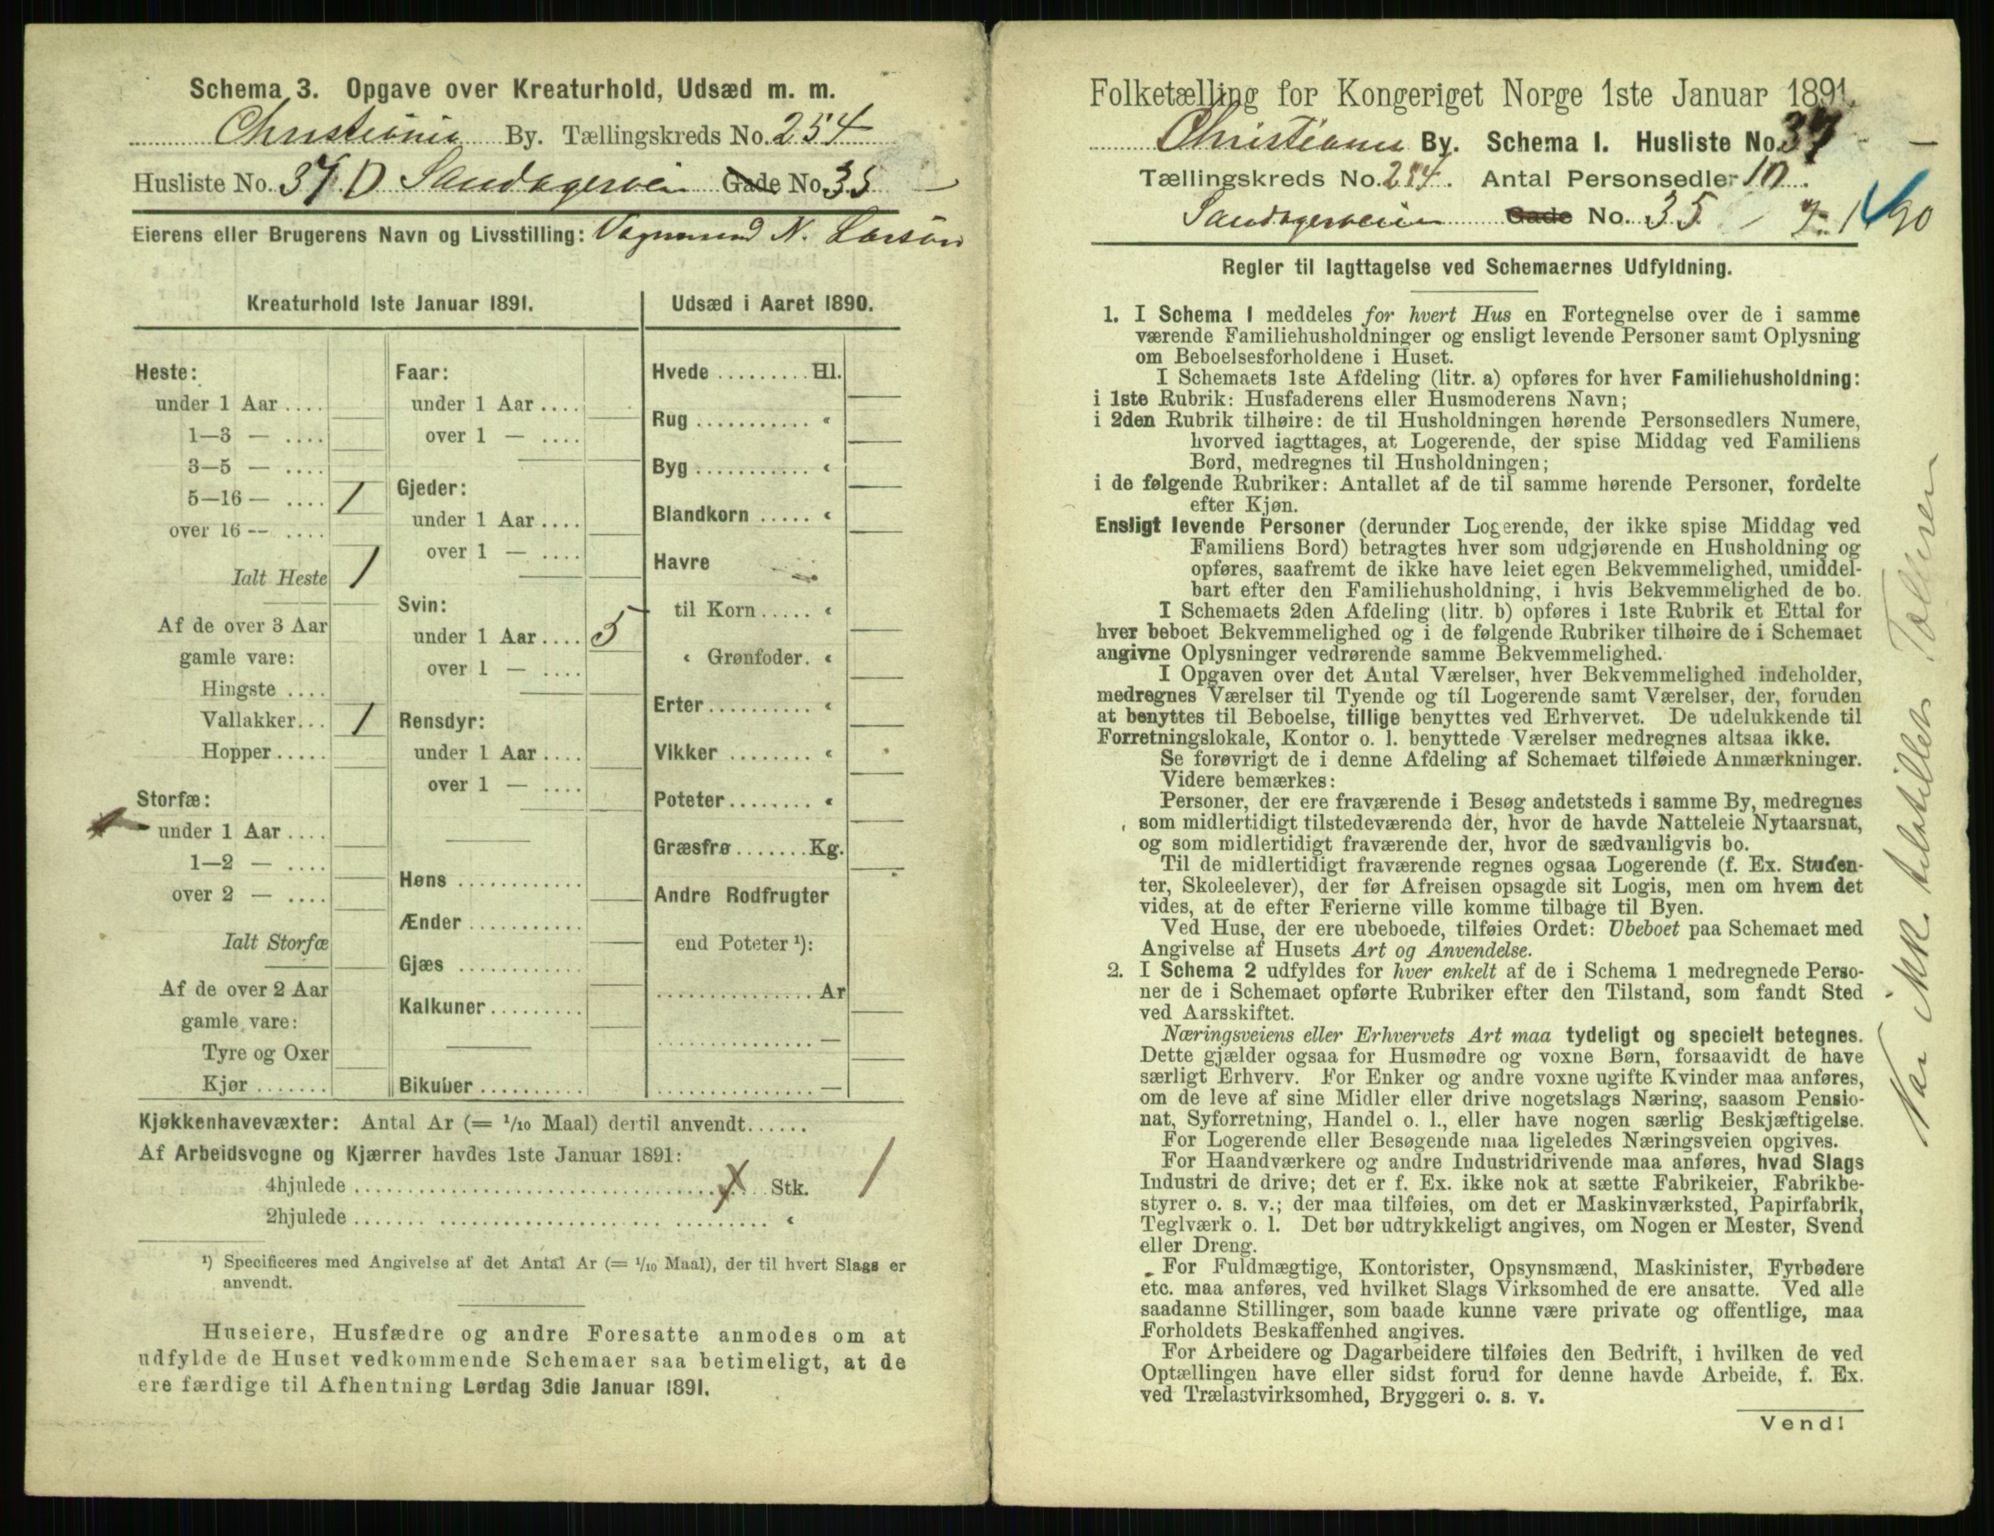 Schema 3. Opgave over Kreaturhold, Udsæd m. m.
Christiania By. Tællingskreds No. 254
Husliste No. 37 D Sandagerveien Gade No. 35
Eierens eller Brugerens Navn og Livsstilling: N. Larsen
Kreaturhold 1ste Januar 1891.
Heste:
under 1 Aar ....
1—3 — ....
3—5 — ....
5—16 — .... 1
over 16 — ....
Ialt Heste 1
Af de over 3 Aar
gamle vare:
Hingste ....
Vallakker... 1
Hopper.....
Storfæ:
under 1 Aar ....
1—2 — ....
over 2 — ....
Ialt Storfæ
Af de over 2 Aar
gamle vare:
Tyre og Oxer
Kjør .......
Faar:
under 1 Aar ....
over 1 — ....
Gjeder:
under 1 Aar ....
over 1 — ....
Svin:
under 1 Aar .... 5
over 1 — ....
Rensdyr:
under 1 Aar ....
over 1 — ....
Høns ............
Ænder ...........
Gjæs ............
Kalkuner.........
Bikuber ..........
Udsæd i Aaret 1890.
Hvede .........Hl.
Rug ........... «
Byg ........... «
Blandkorn ..... «
Havre
til Korn ..... «
« Grønfoder. «
Erter.......... «
Vikker ........ «
Poteter........ «
Græsfrø.......Kg.
Andre Rodfrugter
end Poteter ¹):
............... Ar
............... —
............... —
Kjøkkenhavevæxter: Antal Ar (= 1/10 Maal) dertil anvendt......
Af Arbeidsvogne og Kjærrer havdes 1ste Januar 1891:
4hjulede ........................................ Stk. 1
2hjulede ........................................ «
¹) Specificeres med Angivelse af det Antal Ar (= 1/10 Maal), der til hvert Slags er
anvendt.
Huseiere, Husfædre og andre Foresatte anmodes om at
udfylde de Huset vedkommende Schemaer saa betimeligt, at de
ere færdige til Afhentning Lørdag 3die Januar 1891.
Folketælling for Kongeriget Norge 1ste Januar 1891.
Christiania By. Schema I. Husliste No. 37
Tællingskreds No. 254. Antal Personsedler 10.
Sandagerveien Gade No. 35
Regler til Iagttagelse ved Schemaernes Udfyldning.
1. I Schema 1 meddeles for hvert Hus en Fortegnelse over de i samme
værende Familiehusholdninger og ensligt levende Personer samt Oplysning
om Beboelsesforholdene i Huset.
I Schemaets 1ste Afdeling (litr. a) opføres for hver Familiehusholdning:
i 1ste Rubrik: Husfaderens eller Husmoderens Navn;
i 2den Rubrik tilhøire: de til Husholdningen hørende Personsedlers Numere,
hvorved iagttages, at Logerende, der spise Middag ved Familiens
Bord, medregnes til Husholdningen;
i de følgende Rubriker: Antallet af de til samme hørende Personer, fordelte
efter Kjøn.
Ensligt levende Personer (derunder Logerende, der ikke spise Middag ved
Familiens Bord) betragtes hver som udgjørende en Husholdning og
opføres, saafremt de ikke have leiet egen Bekvemmelighed, umiddel-
bart efter den Familiehusholdning, i hvis Bekvemmelighed de bo.
I Schemaets 2den Afdeling (litr. b) opføres i 1ste Rubrik et Ettal for
hver beboet Bekvemmelighed og i de følgende Rubriker tilhøire de i Schemaet
angivne Oplysninger vedrørende samme Bekvemmelighed.
I Opgaven over det Antal Værelser, hver Bekvemmelighed indeholder,
medregnes Værelser til Tyende og til Logerende samt Værelser, der, foruden
at benyttes til Beboelse, tillige benyttes ved Erhvervet. De udelukkende til
Forretningslokale, Kontor o. l. benyttede Værelser medregnes altsaa ikke.
Se forøvrigt de i denne Afdeling af Schemaet tilføiede Anmærkninger.
Videre bemærkes:
Personer, der ere fraværende i Besøg andetsteds i samme By, medregnes
som midlertidigt tilstedeværende der, hvor de havde Natteleie Nytaarsnat,
og som midlertidigt fraværende der, hvor de sædvanligvis bo.
Til de midlertidigt fraværende regnes ogsaa Logerende (f. Ex. Studen-
ter, Skoleelever), der før Afreisen opsagde sit Logis, men om hvem det
vides, at de efter Ferierne ville komme tilbage til Byen.
Ved Huse, der ere ubeboede, tilføies Ordet: Ubeboet paa Schemaet med
Angivelse af Husets Art og Anvendelse.
2. I Schema 2 udfyldes for hver enkelt af de i Schema 1 medregnede Perso-
ner de i Schemaet opførte Rubriker efter den Tilstand, som fandt Sted
ved Aarsskiftet.
Næringsveiens eller Erhvervets Art maa tydeligt og specielt betegnes.
Dette gjælder ogsaa for Husmødre og voxne Børn, forsaavidt de have
særligt Erhverv. For Enker og andre voxne ugifte Kvinder maa anføres,
om de leve af sine Midler eller drive nogetslags Næring, saasom Pensio-
nat, Syforretning, Handel o. l., eller have nogen særlig Beskjæftigelse.
For Logerende eller Besøgende maa ligeledes Næringsveien opgives.
For Haandværkere og andre Industridrivende maa anføres, hvad Slags
Industri de drive; det er f. Ex. ikke nok at sætte Fabrikeier, Fabrikbe-
styrer o. s. v.; der maa tilføies, om det er Maskinværksted, Papirfabrik,
Teglværk o. l. Det bør udtrykkeligt angives, om Nogen er Mester, Svend
eller Dreng.
For Fuldmægtige, Kontorister, Opsynsmænd, Maskinister, Fyrbødere
etc. maa anføres, ved hvilket Slags Virksomhed de ere ansatte. Ved alle
saadanne Stillinger, som baade kunne være private og offentlige, maa
Forholdets Beskaffenhed angives.
For Arbeidere og Dagarbeidere tilføies den Bedrift, i hvilken de ved
Optællingen have eller sidst forud for denne havde Arbeide, f. Ex.
ved Trælastvirksomhed, Bryggeri o. s. v.
Vend!
Var ikke tilstilles